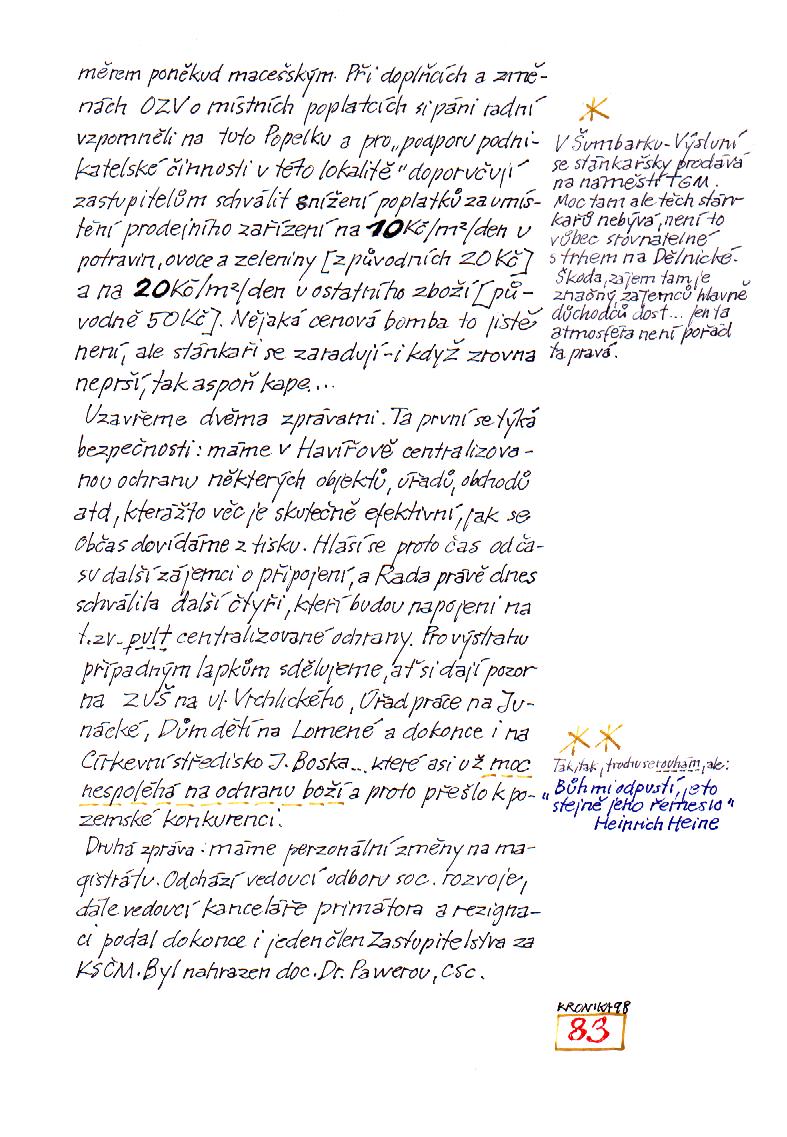 měrem poněkud macešským. Při doplňcích a změ-
nách OZV o místních poplatcích si páni radní
vzpomněli na tuto Popelku a pro „podporu podni-
katelské činnosti v této lokalitě" doporučují
zastupitelům schválit snížení poplatků za umís-
tění prodejního zařízení na 10Kč/m²/den u
potravin, ovoce a zeleniny [z původních 20 Kč]
a na 20Kč/m²/den u ostatního zboží [pů-
vodně 50Kč]. Nějaká cenová bomba to jistě
není, ale stánkaři se zaradují - i když zrovna
neprší, tak aspoň kape...
Uzavřeme dvěma zprávami. Ta první se týká
bezpečnosti: máme v Havířově centralizova-
nou ochranu některých objektů, úřadů, obchodů
atd, kterážto věc je skutečně efektivní, jak se
občas dovídáme z tisku. Hlásí se proto čas od ča-
su další zájemci o připojení, a Rada právě dnes
schválila další čtyři, kteří budou napojeni na
t.zv. pult centralizované ochrany. Pro výstrahu
případným lapkům sdělujeme, ať si dají pozor
na ZUŠ na ul. Vrchlického, Úřad práce na Ju-
nácké, Dům dětí na Lomené a dokonce i na
Církevní středisko J. Boska... které asi už moc
nespoléhá na ochranu boží a proto přešlo k po-
zemské konkurenci.
Druhá zpráva: máme perzonální změny na ma-
gistrátu. Odchází vedoucí odboru soc. rozvoje,
dále vedoucí kanceláře primátora a rezigna-
ci podal dokonce i jeden člen Zastupitelstva za
KSČM. Byl nahrazen doc. Dr. Pawerou, CSc.
*
V Šumbarku - Výsluní
se stánkařsky prodává
na náměstí TGM.
Moc tam ale těch stán-
kařů nebývá, není to
vůbec srovnatelné
s trhem na Dělnické.
Škoda, zájem tam je
značný, zájemců hlavně
důchodců dost... jen ta
atmosféra není pořád
ta pravá.
* *
Tak, tak, trochu se rouhám, ale:
„Bůh mi odpustí, je to
stejně jeho řemeslo"
Heinrich Heine
KRONIKA 98
83